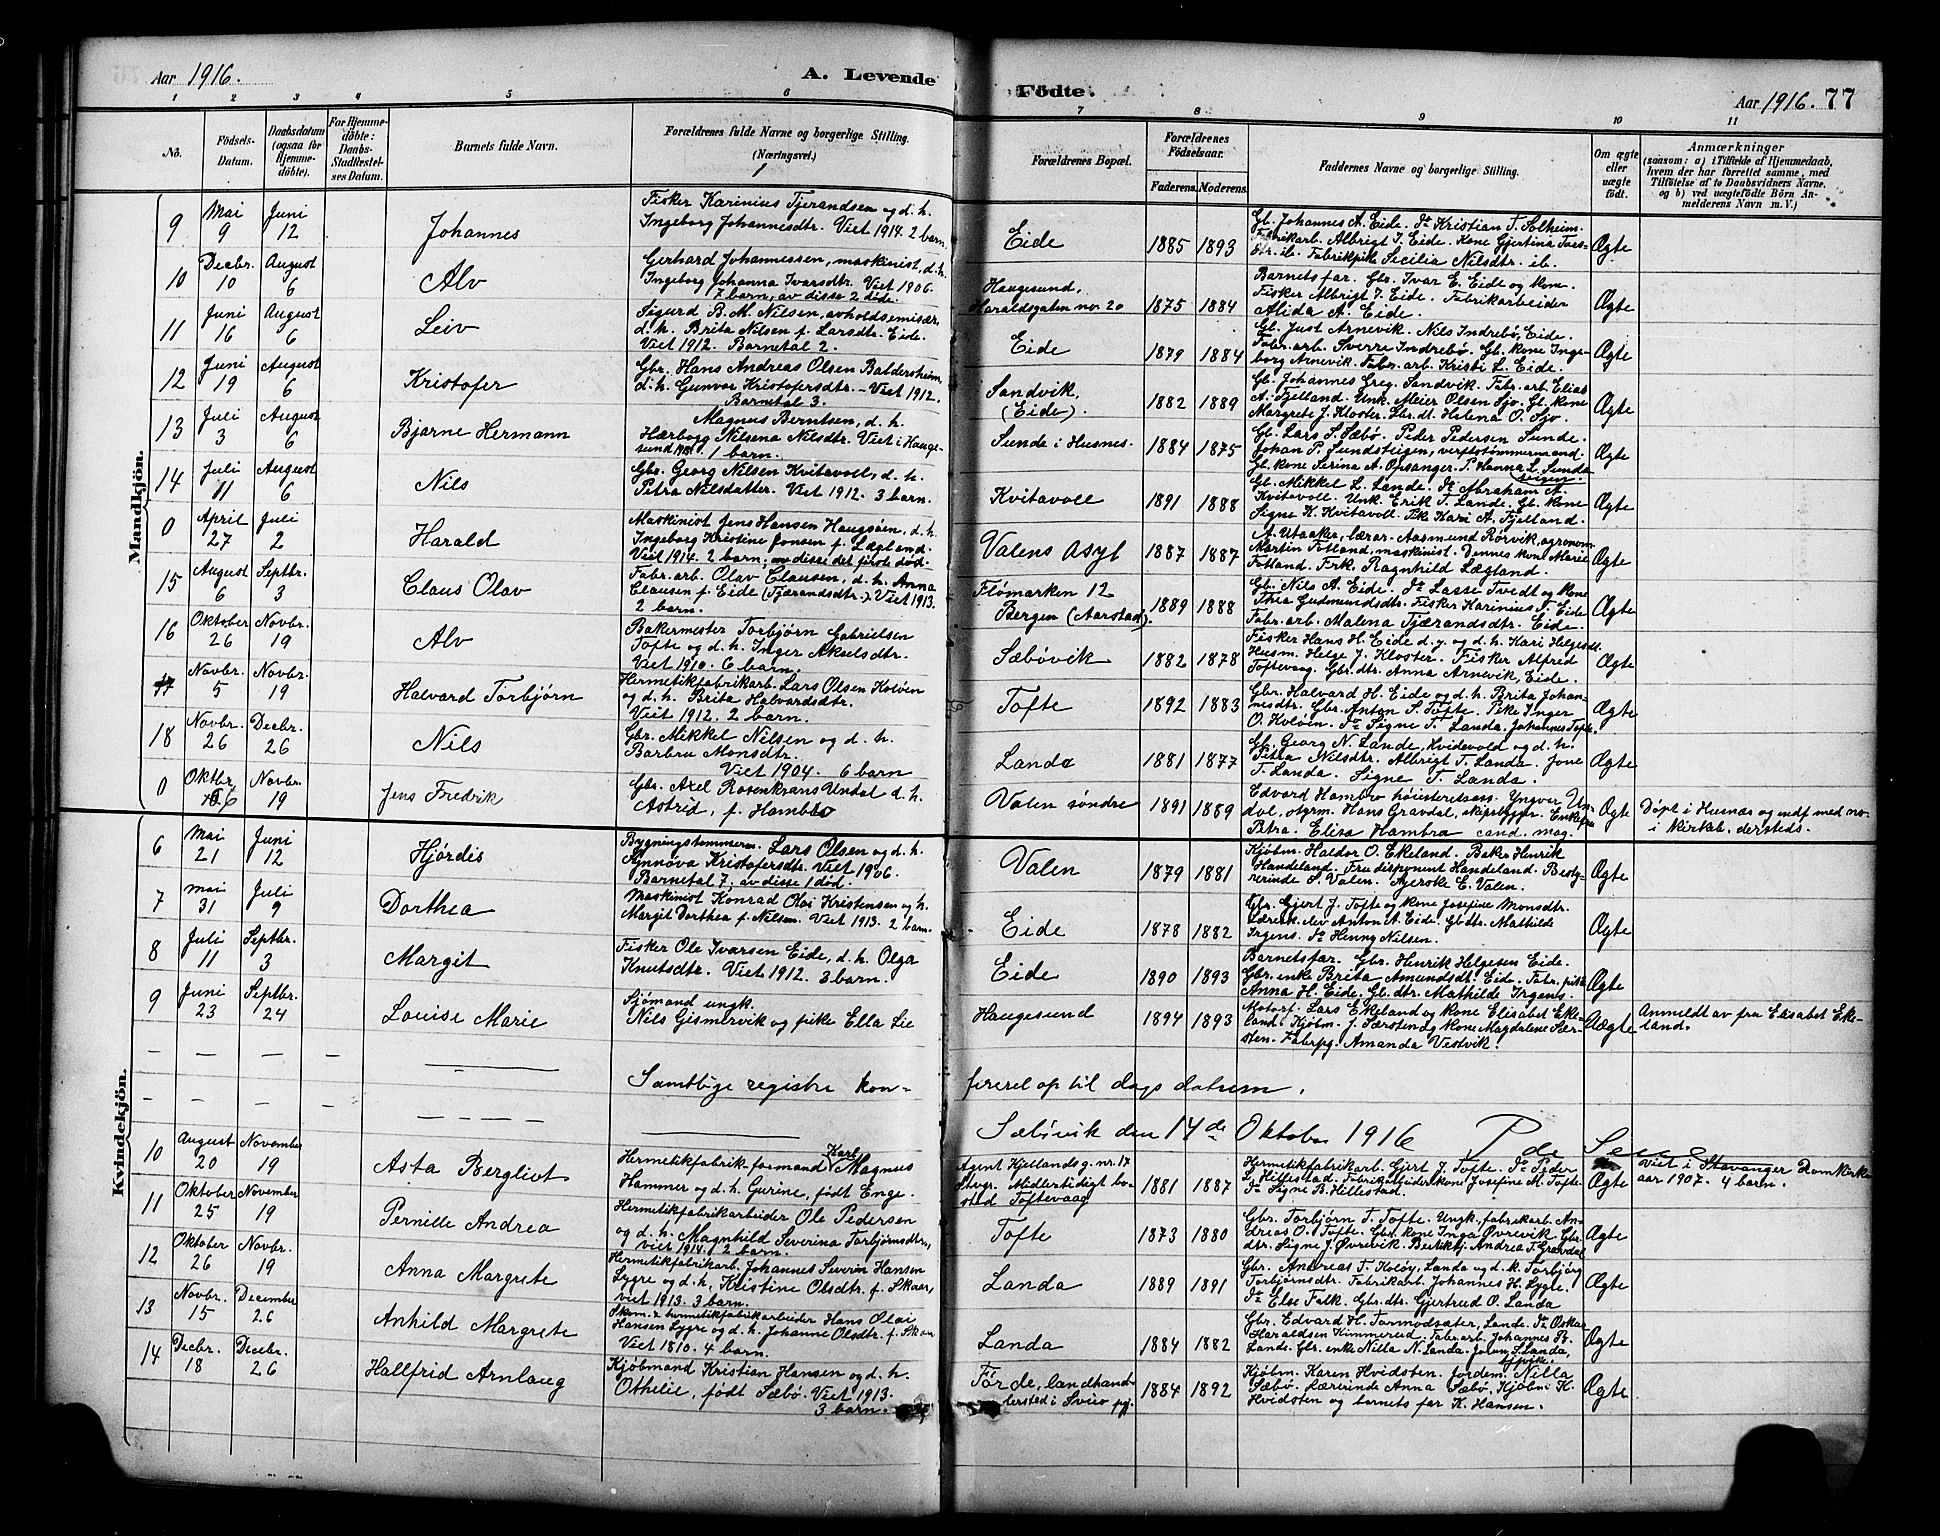 Aar 1916.
A. Levende
Födte.
Aar 1916. 77
1 2 3 4 5 6 7 8 9 10 11
No.
Födsels-Datum.
Daabsdatum (ogsaa for Hjemmedöbte).
For Hjemmedöbte: Daabs-Stadfæstelses Datum.
Barnets fulde Navn.
Forældrenes fulde Navne og borgerlige Stilling. (Næringsvei.)
Forældrenes Bopæl.
Forældrenes Födselsaar.
Faderens. Moderens.
Faddernes Navne og borgerlige Stilling.
Om ægte eller uægte födt.
Anmærkninger
(saasom: a) i Tilfælde af Hjemmedaab,
hvem der har forrettet samme, med
Tilföielse af to Daabsvidners Navne,
og b) ved uægtefödte Börn Anmelderens Navn m. V.)
Mandkjön.
9 Mai 9 Juni 12 Johannes
Fisker Karinius Tjerandsen og d. h.
Ingeborg Johannesdtr. Viet 1914. 2 barn.
Eide 1885 1893
Gb. Johannes A. Eide. Do Kristian T. Solheim.
Fabrikarb. Albrigt I. Eide. Kone Gjertina Tors-
dtr. ib. Fabrikpike Secilia Nilsdtr. ib.
Ægte
10 Decbr. 10 August 6 Alv
Gerhard Johannessen, maskinist, d. h.
Ingeborg Johanna Ivarsdtr. Viet 1906.
7 barn, av disse 2 døde.
Haugesund, Haraldsgaten no. 20 1875 1884
Barnets far. Gbr. Ivar E. Eide og kone.
Fisker Albrigt I. Eide. Fabrikarbeider
Alida A. Eide.
Ægte
11 Juni 16 August 6 Leiv
Sigurd B. M. Nilsen, avholdsemisær,
d. h. Brita Nilsen f. Larsdtr. Eide.
Viet 1912. Barnetal 2.
Eide 1879 1884
Gb. Just Arnevik. Nils Indrebø, Eide.
Fabr. arb. Sverre Indrebø. Gb. kone Inge-
borg Arnevik. Fabr. arb. Kristi L. Eide.
Ægte
12 Juni 19 August 6 Kristofer
Gbr. Hans Andreas Olsen Baldersheim,
d. h. Gunvor Kristofersdtr. - Viet 1912.
Barnetal 3.
Sandvik, (Eide). 1882 1889
Gb. Johannes Greg. Sandvik. Fabr. arb. Elias
A. Fjelland. Unk. Meier Olsen Sjo. Gb. kone
Margrete J. Kloster. Gbr. dt. Helena O. Sjo.
Ægte
13 Juli 3 August 6 Bjarne Hermann
Magnus Berntsen, d. h.
Hærborg Nilsena Nilsdtr. Viet i Hauge-
sund 1 barn.
Sunde i Husnes. 1884 1875
Gb. Lars S. Sæbø. Peder Pedersen Sunde.
Johan P. Sundsteigen, verftstømmermand.
Gb. kone Serina A. Opsanger. P. Hanna L. Sunds-
teigen.
Ægte
14 Juli 11 August 6 Nils
Gbr. Georg Nilsen Kvitavoll, d. h.
Petra Nilsdatter. Viet 1912. 3 barn.
Kvitavoll 1891 1888
Gb. Mikkel L. Lande. Do Abraham A.
Kvitavoll. Unk. Erik T. Lande. Gb. kone
Signe K. Kvitavoll. Pike Kari A. Fjelland.
Ægte
0 April 27 Juli 2 Harald
Maskinist Jens Hansen Haugsøen, d. h.
Ingeborg Kristine Jonsen f. Lægland.
Viet 1914. 2 barn, av disse det første død.
Valens Asyl 1887 1887
A. Utaaker, lærer. Aasmund Rørvik, agronom.
Martin Fotland, maskinist. Dennes kone Marie
Fotland. Frk. Ragnhild Lægland.
Ægte
15 August 6 Septbr. 3 Claus Olav
Fabr. arb. Olav Clausen, d. h. Anna
Clausen f. Eide (Tjærandsdtr.) Viet 1913.
2 barn.
Flømarken 12 Bergen (Aarstad). 1889 1888
Gb. Nils A. Eide. Do Lasse Tvedt og kone
Thea Gudmundsdtr. Fisker Karinius T. Eide
Fabr. arb. Malena Tjærandsdtr. Eide.
Ægte
16 Oktober 26 Novbr. 19 Alv
Bakermester Torbjørn Gabrielsen
Tofte og d. h. Inger Akselsdtr.
Viet 1910. 6 barn.
Sæbøvik 1882 1878
Fisker Hans H. Eide d. y. og d. h. Kari Helgesdt.
Husm. Helge J. Kloster. Fisker Alfred
Toftevaag. Gbr. dtr. Anna Arnevik, Eide.
Ægte
17 Novbr. 5 Novbr. 19 Halvard Torbjørn
Hermetikfabrikarb. Lars Olsen Koløen
og d. h. Brita Halvardsdtr.
Viet 1912. 2 barn.
Tofte 1892 1883
Gbr. Halvard H. Eide og d. h. Brita Johan-
nesdtr. Gbr. Anton S. Tofte. Pike Inger
O. Koløen. Do Signe T. Landa, Johannes Tofte.
Ægte
18 Novbr. 26 Decbr. 26 Nils
Gbr. Mikkel Nilsen og d. h.
Barbru Monsdtr.
Viet 1904. 6 barn
Landa 1881 1877
Gb. Georg N. Lande, Hvidevold og d. h.
Petra Nilsdtr. Albrigt T. Landa. Jone
T. Landa. Signe T. Landa.
Ægte
0 Oktbr. 6 Novbr. 19 Jens Fredrik
Gbr. Axel Rosenkrans Undal d. h.
Astrid, f. Hambro
Valen søndre 1891 1889
Edvard Hambro høiesteretsass. Yngvar Un-
dal, styrm. Hans Gravdal, skipsbygger. Enkefru
Petra. Elisa Hambro cand. mag.
Ægte
Døpt i Husnæs og indf. med no.
i kirkeb. dersteds.
Kvindekjön.
6 Mai 21 Juni 12 Hjørdis
Bygningstømmerm. Lars Olsen og d. h.
Synnøva Kristofersdtr. Viet 1906.
Barnetal 7, av disse 1 død.
Valen 1879 1881
Kjøbm. Haldor O. Ekeland. Baker Henrik
Handeland. Fru disponent Handeland. Besty-
rerinde S. Valen. Agerske E. Valen.
Ægte
7 Mai 31 Juli 9 Dorthea
Maskinist Konrad Olai Kristensen og h.
Margit Dorthea f. Nilsen. Viet 1913. 2 barn.
Eide 1878 1882
Gbr. Gjert J. Tofte og kone Josefine Monsdtr.
Lærerelev Anton A. Eide. Gb. dtr. Mathilde
Irgens. Do Henny Nilsen.
Ægte
8 Juli 11 Septbr. 3 Margit
Fisker Ole Ivarsen Eide, d. h. Olga
Knutsdtr. Viet 1912. 3 barn.
Eide 1890 1893
Barnets far. Gbr. Henrik Helgesen Eide.
Gbr. enke Brita Amundsdt. Eide. Fabr. pike
Anna H. Eide. Gb. dtr. Mathilde Irgens.
Ægte
9 Juni 23 Septbr. 24 Louise Marie
Sjømand ungk.
Nils Gismervik og pike Ella Lie
Haugesund 1894 1893
Motorf. Lars Ekeland og kone Elisabet Eke-
land. Kjøbm. J. Særsten og kone Magdalene Sær-
sten. Fabrpg. Amanda Vestvik.
Uægte
Anmeldt av fru Elisabet Eke-
land.
Samtlige registre kon-
fereret op til dags datum.
Sæbøvik den 14de Oktober 1916
10 August 20 November 19 Asta Bergliot
Hermetikfabrik-formand Karl Magnus
Hammer og d. h. Gurine, født Enge.
Agent Kjellands g. nr. 17 Stvgr. Midlertidigt bosted Toftevaag 1881 1887
Hermetikfabrikarb. Gjert J. Tofte. Do Peder
L. Hillestad. Fabrikarbeiderskone Josefine M. Tofte.
Do Signe B. Hillestad.
Ægte
Viet i Stavanger Domkirke
aar 1907. 4 barn.
11 Oktober 25 November 19 Pernille Andrea
Hermetikfabrikarbeider Ole Pedersen
og d. h. Magnhild Severina Torbjørnsdtr,
viet 1914. 2 barn.
Tofte 1873 1880
Gbr. Torbjørn T. Tofte. Ungk. fabrikarb. An-
dreas O. Tofte. Gbr. kone Inga Øvrevik. Gbr.
dtr. Signe J. Øvrevik. Butikbj. Andrea F. Gravdal
Ægte
12 Oktober 26 Novbr. 19 Anna Margrete
Hermetikfabrikarb. Johannes Severin Hansen
Lygre og d. h. Kristine Olsdtr. f. Skaar,
viet 1913. 3 barn.
Landa 1889 1891
Gbr. Andreas T. Koløy, Landa og d. k. Torbjørg
Torbjørnsdtr. Fabrikarb. Johannes H. Lygre.
Do Else Falk. Gbr. dtr. Gjertrud O. Landa
Ægte
13 Novbr. 15 December 26 Anhild Margrete
Skom. & hermetikfabrikarbeider Hans Olai
Hansen Lygre og d. h. Johanne Olsdtr. f. Skaar
Viet 1810. 4 barn.
Landa 1884 1882
Gbr. Edvard H. Tormodsæter, Lande. Do Oskar
Haraldsen Kimmerud. Fabr. arb. Johannes H.
Lande. Gbr. enke Nilla N. Landa. Johan. S. Landa,
Ægte
14 Decbr. 18 Decbr. 26 Hallfrid Arnlaug
Kjøbmand Kristian Hansen og d. h.
Othelie, født Sæbø. Viet 1913.
3 barn.
Førde, landhandlersted i Sveio pgj. 1884 1892
Kjøbm. Karen Hvidsten. Jordem. Nilla
Sæbø. Lærerinde Anna Sæbø. Kjøbm. K.
Hvidsten og barnets far K. Hansen.
Ægte